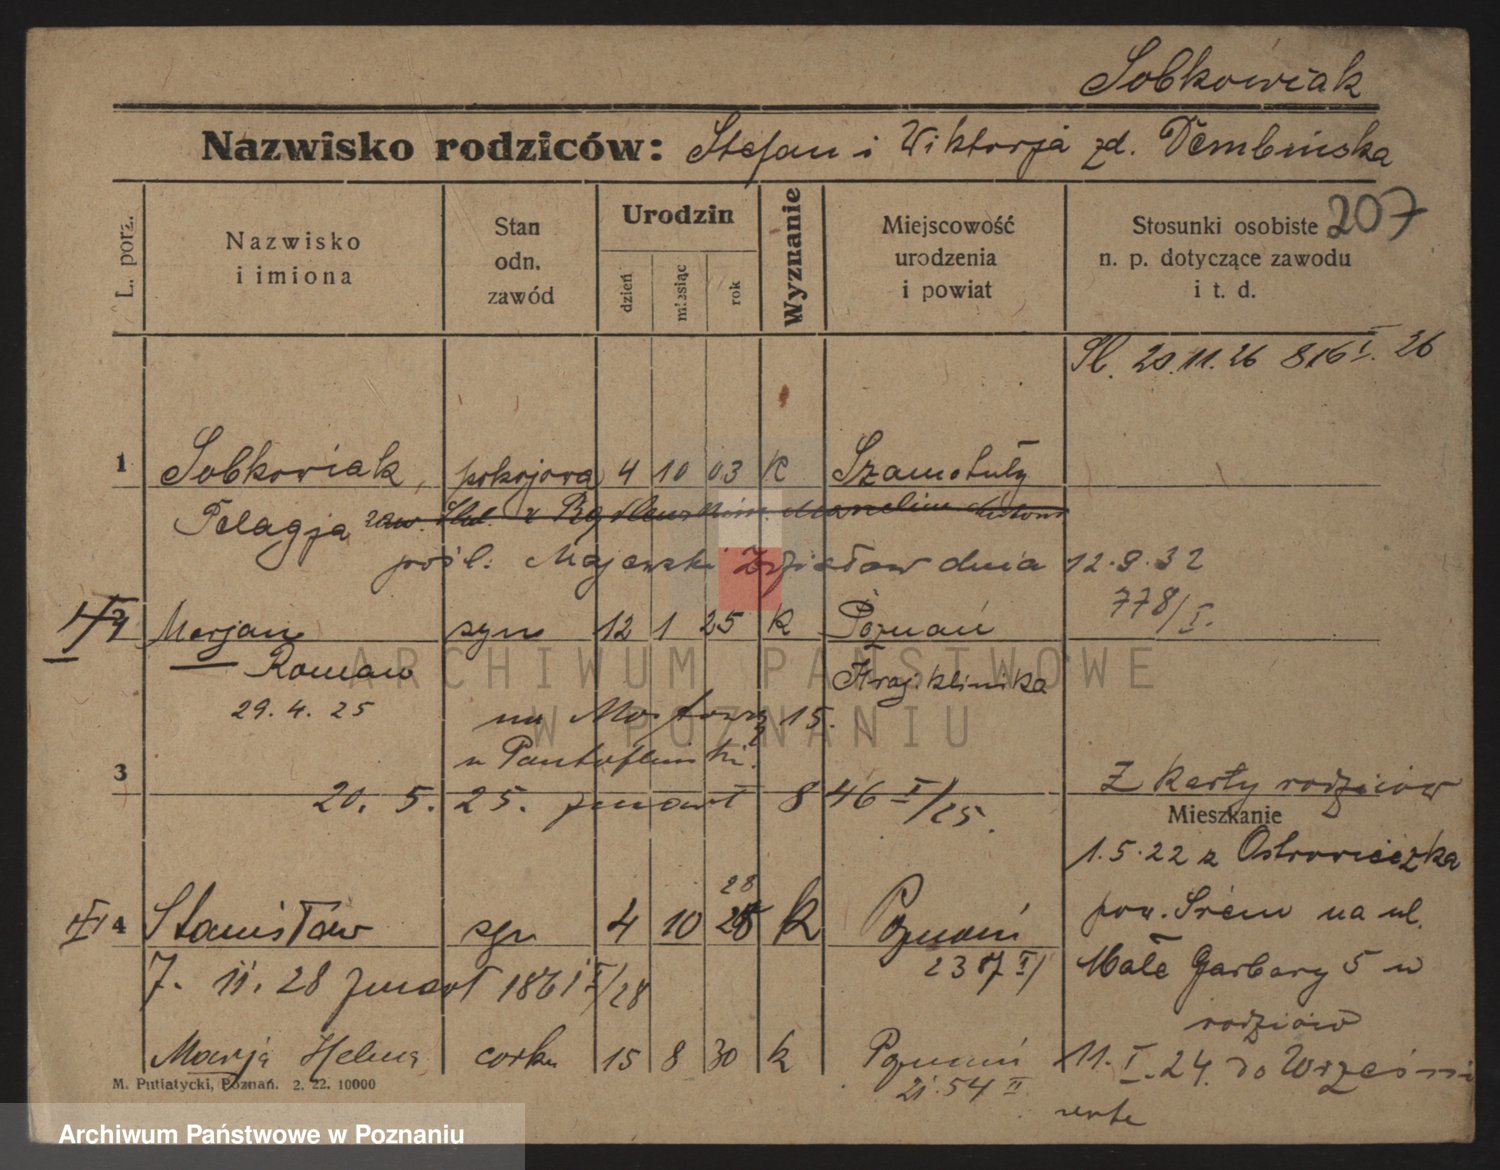 Sobkowiak
Nazwisko rodziców: Stefan i Wiktorja zd. Dembińska
207
L. porz.
Nazwisko i imiona
Stan odn. zawód
Urodzin
dzień
miesiąc
rok
Wyznanie
Miejscowość urodzenia i powiat
Stosunki osobiste n. p. dotyczące zawodu i t. d.
Sł. 20.11.26 816 I. 26
1 Sobkowiak, pokojowa 4 10 03 k Szamotuły
Pelagja
pośl. Majewski Zdzisław dnia 12.9.32
778/I.
Marjan syn 12 1 25 k Poznań
Roman Kraj. klinika
29. 4. 25 na Mostową 15.
3
20. 5. 25. zmarł 846 I/25.
Z karty rodziców
Mieszkanie
1.5.22 z Ostrowieczka
pow. Śrem na ul.
4 Stanisław syn 4 10 28 k Poznań
2387 I/
Małe Garbary 5 u
rodziców
7. 11. 28 zmarł 1861 I/28
Marja Helena córka 15 8 30 k Poznań
2154 II
11. I. 24. do Wrześni
M. Putiatycki, Poznań. 2. 22. 10000
ARCHIWUM PAŃSTWOWE
W POZNANIU
Archiwum Państwowe w Poznaniu